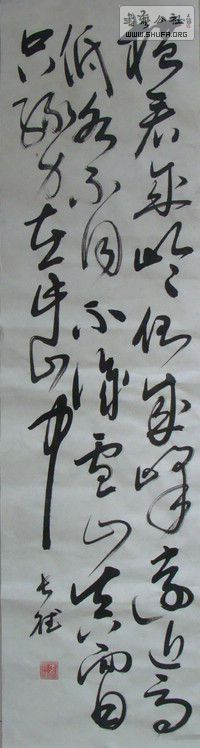 书艺公社
WWW.SHUFA.ORG
横看成岭侧成峰遠近高
低各不同不識廬山真面目
只緣身在此山中